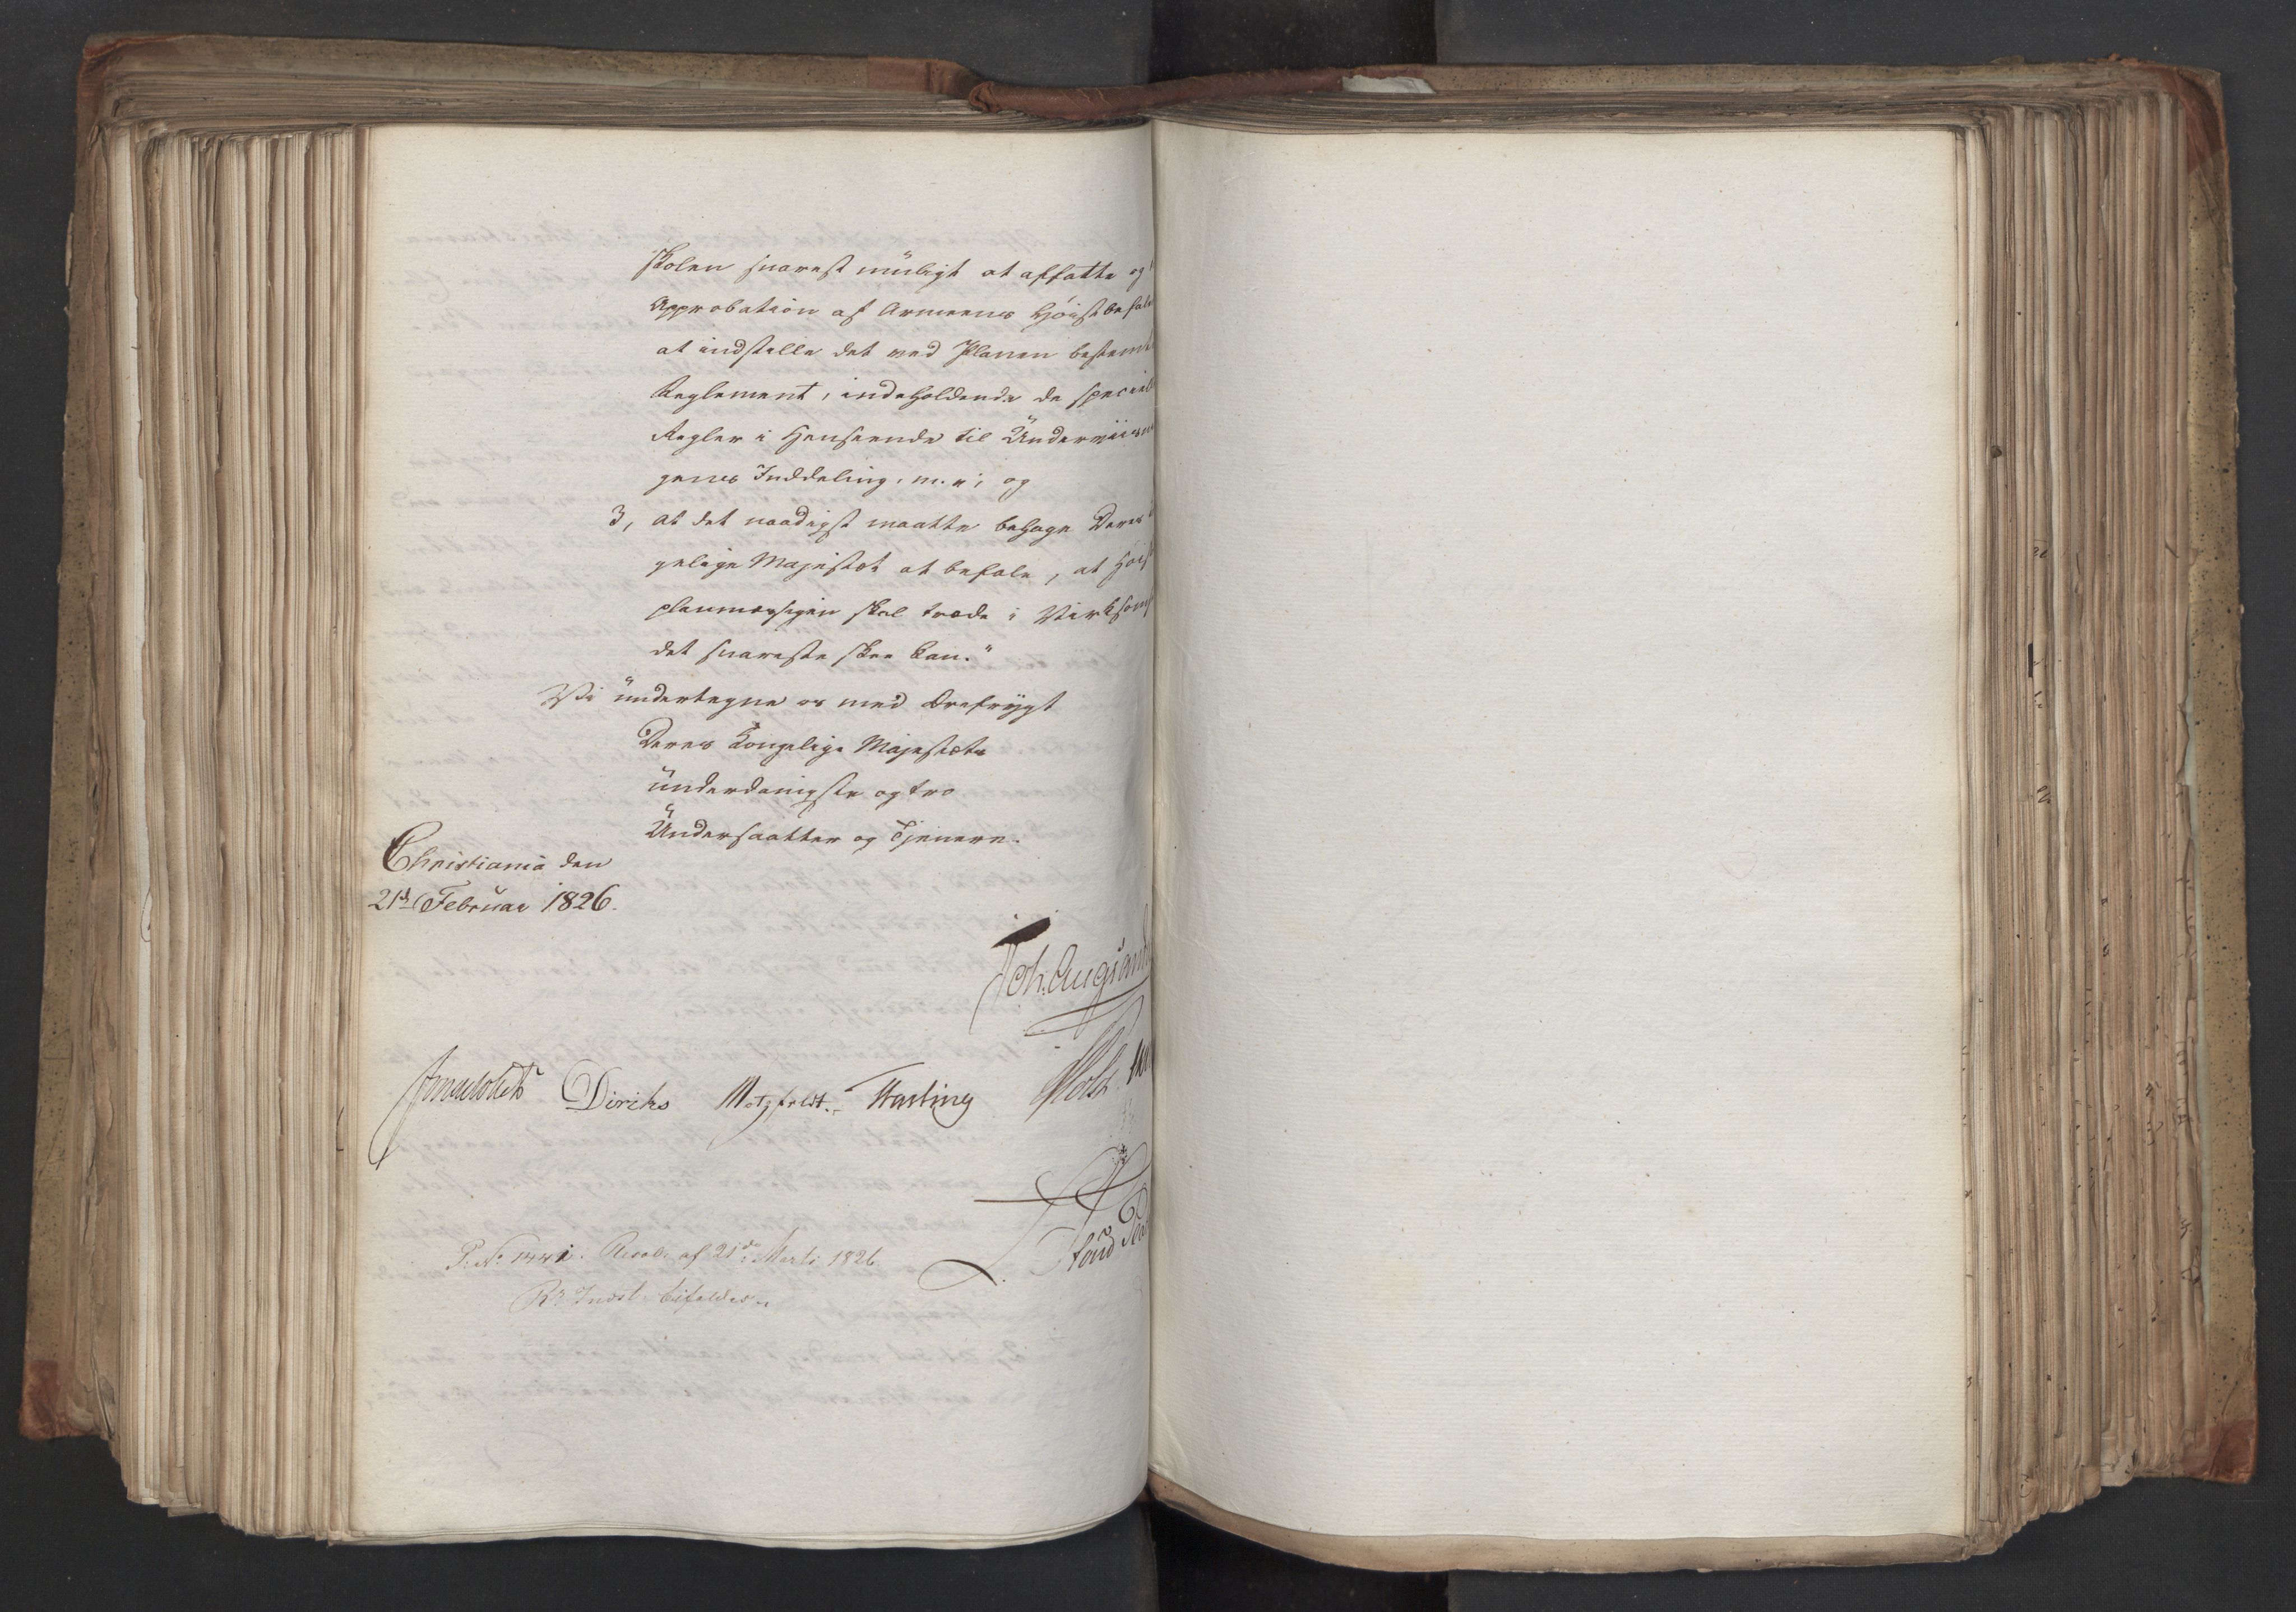 skolen snarest muligt at affatte og
Approbation af Armeens Høistbefal
at indstille det ved Planen bestemt
Reglement, indeholdende de speciel
Regler i Henseende til Underviisn
gens Inddeling, m. v; og
3, at det naadigst maatte behage Deres
gelige Majestæt at befale, at Høis
planmæssigen skal træde i Virksom
det snareste skee kan."
Vi undertegne os med Ærefrygt
Deres Kongelige Majestæts
underdanigste og tro
Undersaatter og Tjenere.
Christiania den
21d Februar 1826.
Joh. Aug. Sand
Diriks Motzfeldt. Fasting Holst
P: No 1441. Resol: af 21de Marts 1826.
Rs Indst. bifaldes.